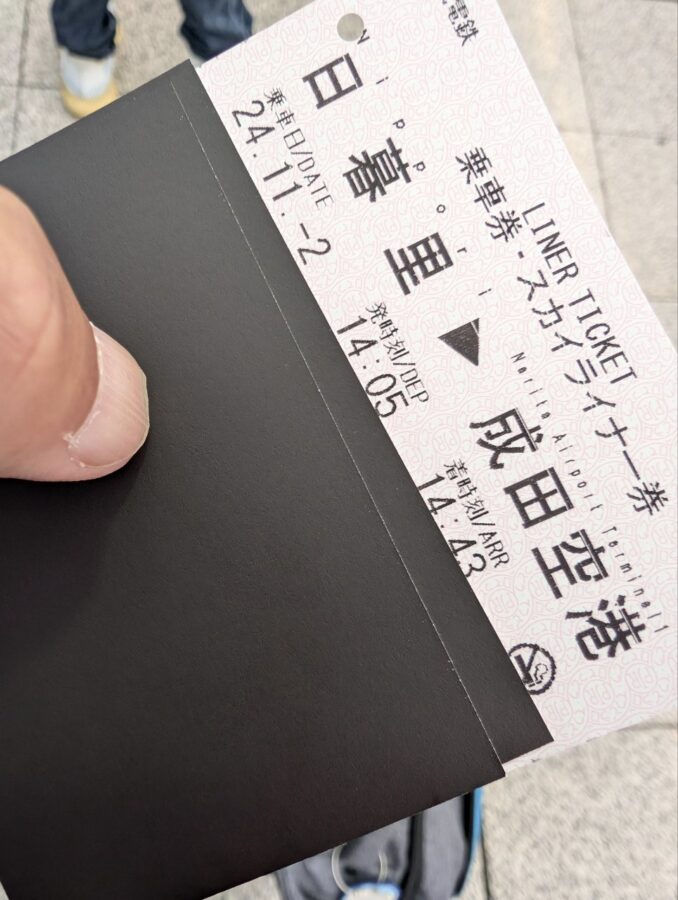 電鉄
LINER TICKET
乗車券・スカイライナー券
Nippori Narita Airport Terminal1
日暮里▶成田空港
乗車日/DATE 発時刻/DEP 着時刻/ARR
24.11.-2 14:05 14:43